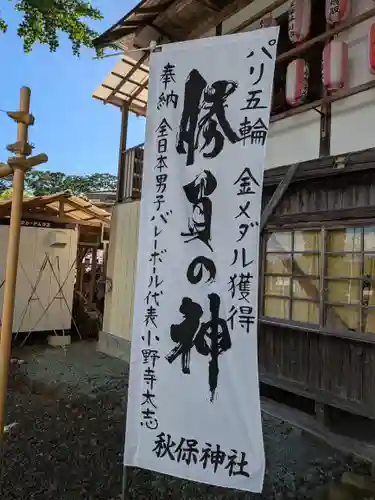 パリ五輪 金メダル獲得
奉納
勝負の神
全日本男子バレーボール代表小野寺太志
秋保神社